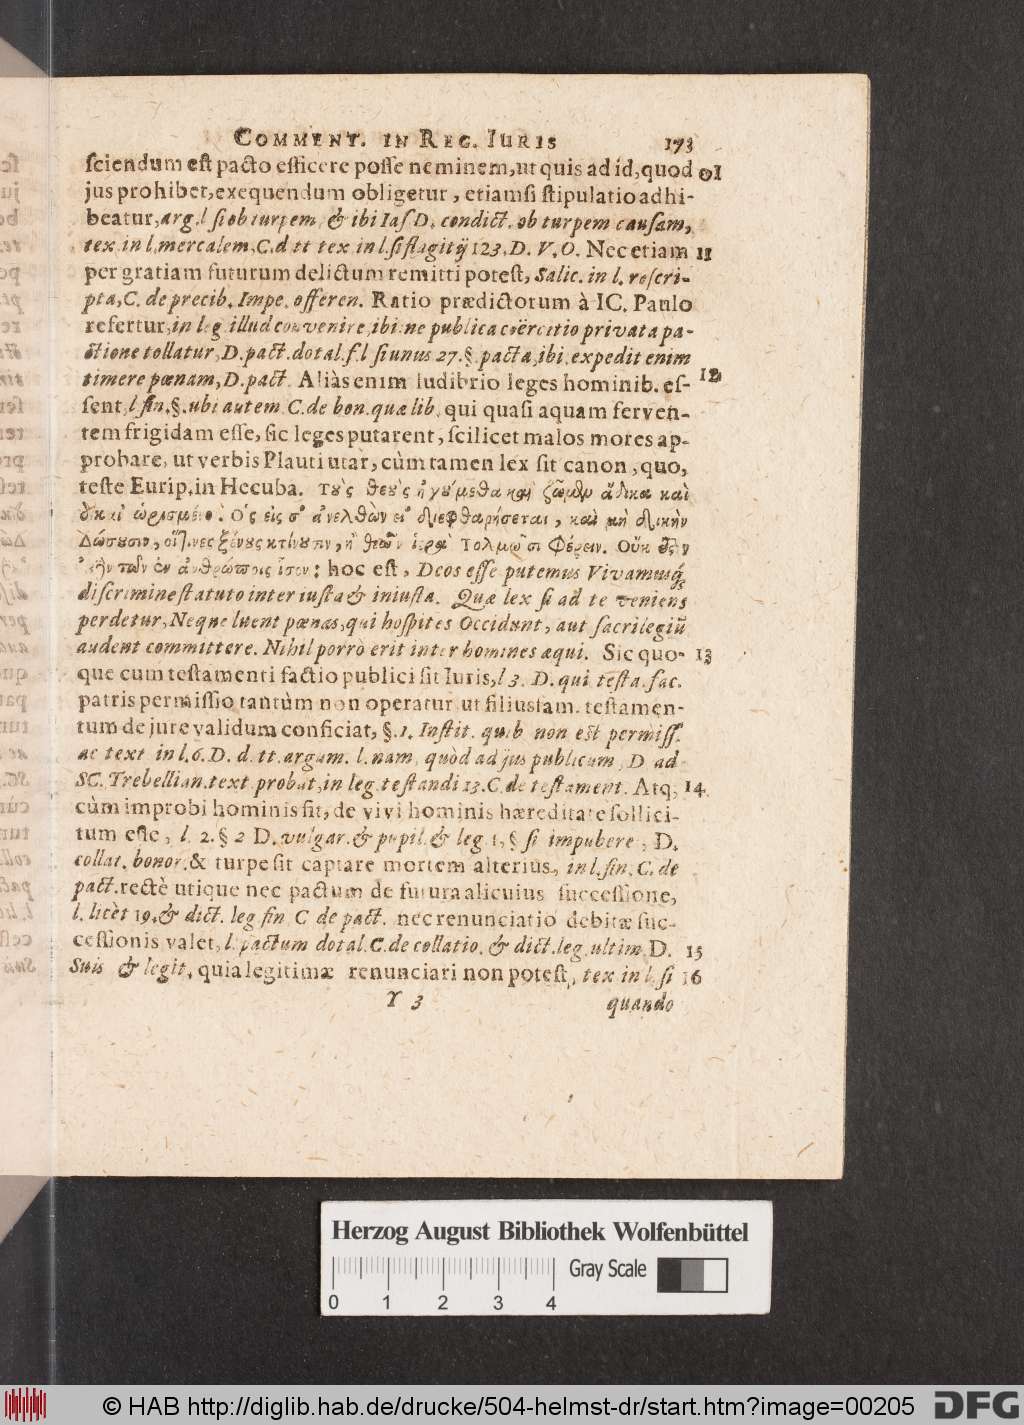 COMMENT. IN REG. IURIS 173
ſciendum eſt pacto efficere poſſe neminem, ut quis ad id, quod 01
jus prohibet, exequendum obligetur, etiamſi ſtipulatio adhi-
beatur, arg. l ſi ob turpem, & ibi Iaſ D. condict. ob turpem cauſam,
tex in l. mercalem, C. d tt tex in l. ſi flagitij 123. D. V. O. Nec etiam 11
per gratiam futurum delictum remitti poteſt, Salic. in l. reſcri-
pta, C. de precib. Impe. offeren. Ratio prædictorum à IC. Paulo
refertur, in leg. illud convenire, ibi: ne publica coërcitio privata pa-
ctione tollatur, D. pact. dotal. f. l ſi unus 27. §. pacta, ibi, expedit enim
timere pœnam, D. pact. Aliàs enim ludibrio leges hominib. eſ- 12
ſent, l fin. §. ubi autem C. de bon. quæ lib. qui quaſi aquam ferven-
tem frigidam eſſe, ſic leges putarent, ſcilicet malos mores ap-
probare, ut verbis Plauti utar, cùm tamen lex ſit canon, quo,
teſte Eurip. in Hecuba. Τοὺς θεοὺς ἡγούμεθα καὶ ζῶμεν ἄδικα καὶ
δίκαι ὡρισμένοι. Ὃς εἰς σ' ἀνελθὼν εἰ διεφθαρήσεται, καὶ μὴ δίκην
Δώσουσιν, οἵτινες ξένους κτίνουσιν, ἢ θεῶν ἱερὰ Τολμῶσι Φέρειν. Οὔκ ἐστιν
τῶν ἐν ἀνθρώποις ἴσον: hoc eſt, Deos eſſe putemus Vivamusq́;
diſcrimine ſtatuto inter iuſta & iniuſta. Quæ lex ſi ad te veniens
perdetur, Neque luent pœnas, qui hoſpites Occidunt, aut ſacrilegiũ
audent committere. Nihil porrò erit inter homines æqui. Sic quo- 13
que cum teſtamenti factio publici ſit Iuris, l 3. D. qui teſta. fac.
patris permiſſio tantùm non operatur, ut filiusfam. teſtamen-
tum de jure validum conficiat, §. 1. Inſtit. quib non eſt permiſſ.
ac text in l. 6. D. d. tt. argum. l. nam, quòd ad jus publicum, D ad
SC. Trebellian. text probat, in leg. teſtandi 13. C. de teſtament. Atq; 14
cùm improbi hominis ſit, de vivi hominis hæreditate ſollici-
tum eſſe, l. 2. § 2 D. vulgar. & pupil. & leg. 1, § ſi impubere, D.
collat. bonor. & turpe ſit captare mortem alterius, in l. fin. C. de
pact. rectè utique nec pactum de futura alicuius ſucceſſione,
l. licèt 19. & dict. leg fin C de pact. nec renunciatio debitæ ſuc-
ceſſionis valet, l. pactum dotal. C. de collatio. & dict. leg. ultim. D. 15
Suis & legit. quia legitimæ renunciari non poteſt, tex in l. ſi 16
Y 3 quando
Herzog August Bibliothek Wolfenbüttel
Gray Scale
0 1 2 3 4
© HAB http://diglib.hab.de/drucke/504-helmst-dr/start.htm?image=00205
DFG